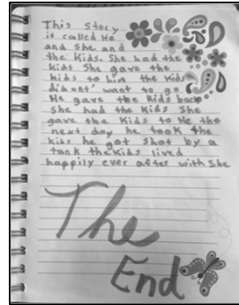 This Story
is called He
and She and
the Kids. She had the
kids She gave the
kids to him the kids
didnent' want to go
He gave the kids back
she had the kids She
gave the kids to He the
next day he took the
kids he got shot by a
tank the kids lived
happily ever after with She
The
End